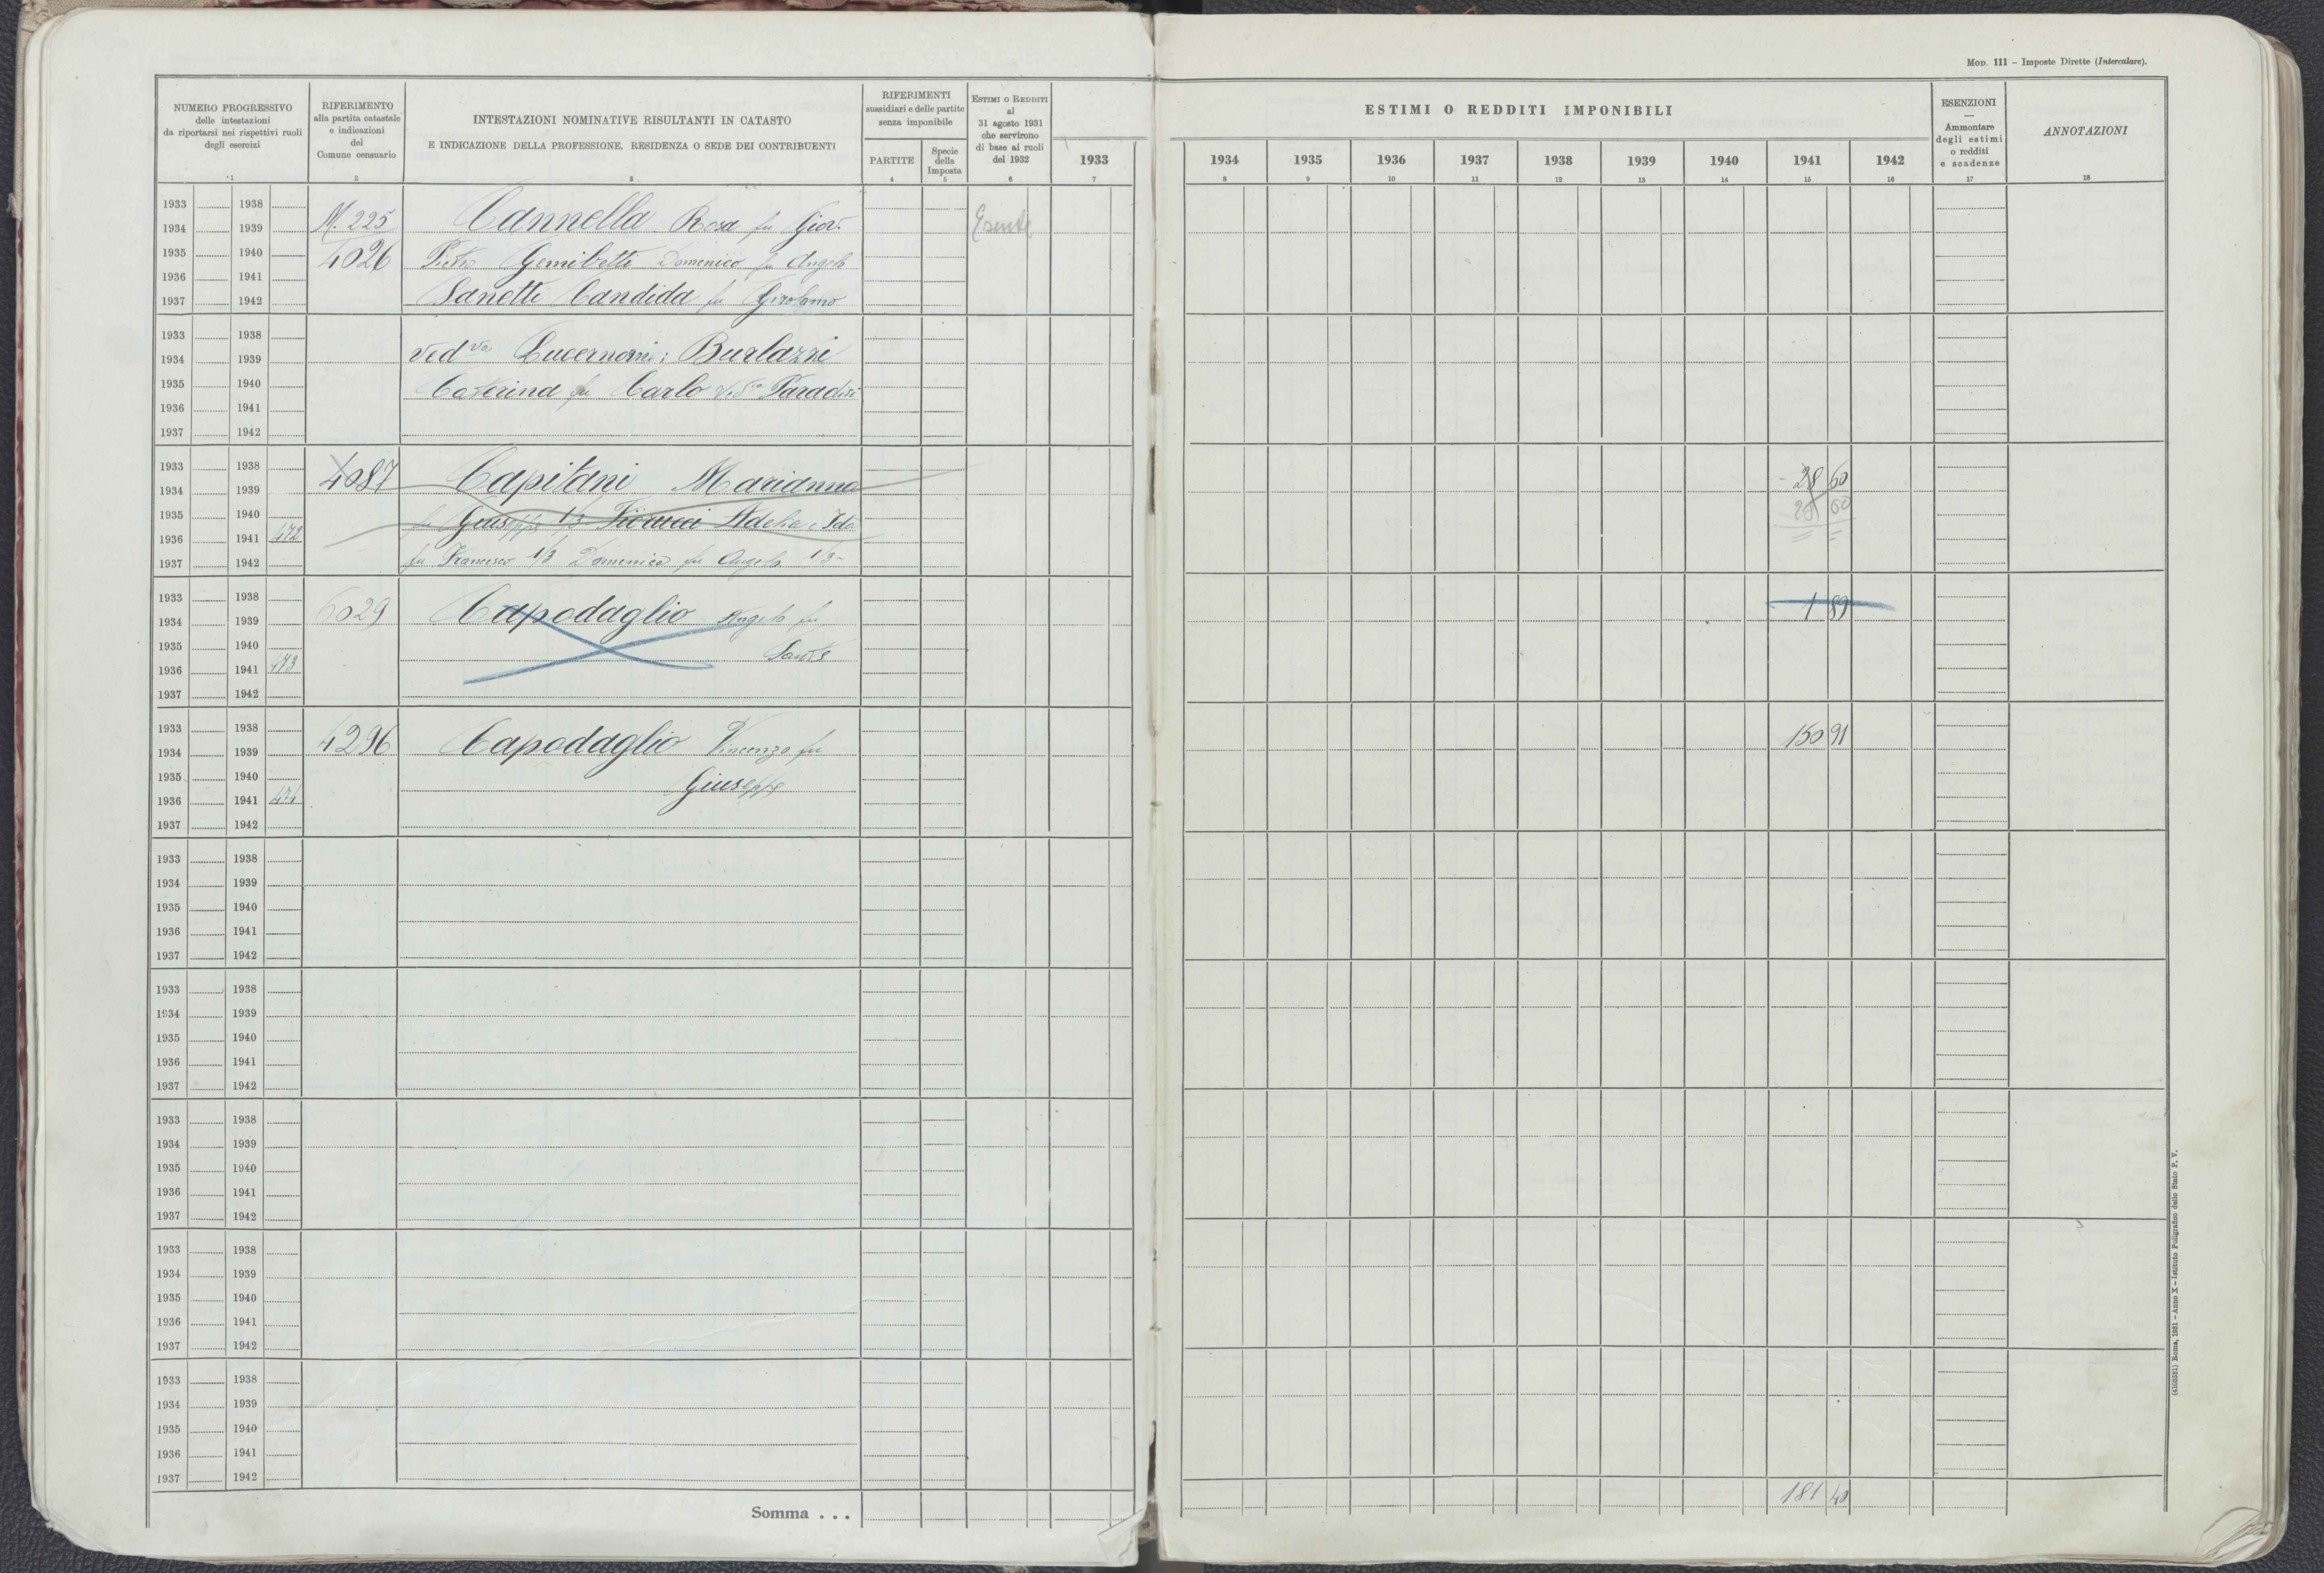 Mod. 111 – Imposte Dirette (Intercalare).
NUMERO PROGRESSIVO
delle intestazioni
da riportarsi nei rispettivi ruoli
degli esercizi
1
RIFERIMENTO
alla partita catastale
e indicazioni
del
Comune censuario
2
INTESTAZIONI NOMINATIVE RISULTANTI IN CATASTO
E INDICAZIONE DELLA PROFESSIONE, RESIDENZA O SEDE DEI CONTRIBUENTI
3
RIFERIMENTI
sussidiari e delle partite
senza imponibile
PARTITE
4
Specie
della
Imposta
5
Estimi o Redditi
al
31 agosto 1931
che servirono
di base ai ruoli
del 1932
6
1933
7
ESTIMI O REDDITI IMPONIBILI
1934 1935 1936 1937 1938 1939 1940 1941 1942
8 9 10 11 12 13 14 15 16
ESENZIONI
—
Ammontare
degli estimi
o redditi
e scadenze
17
ANNOTAZIONI
18
1933 1938
1934 1939 M. 225 Cannella Rosa fu Giov. Esente
1935 1940 4026 Pietro Domenico fu Angelo
1936 1941
1937 1942 Candida fu Girolamo
1933 1938
1934 1939 ved va Burlazzi
1935 1940 Caterina fu Carlo Ved va Paradisi
1936 1941
1937 1942
1933 1938
1934 1939 4087 Capitani Marianna 28 60
1935 1940 fu Giuseppe 1/3 Fiorucci Adelia e 28 60
1936 1941 472
1937 1942 fu Francesco 1/3 Domenico fu Angelo 1/3
1933 1938
1934 1939 6029 Capodaglio Angelo fu 1 89
1935 1940
1936 1941 473 Sante
1937 1942
1933 1938
1934 1939 4296 Capodaglio Vincenzo fu 150 91
1935 1940
1936 1941 474 Giuseppe
1937 1942
1933 1938
1934 1939
1935 1940
1936 1941
1937 1942
1933 1938
1934 1939
1935 1940
1936 1941
1937 1942
1933 1938
1934 1939
1935 1940
1936 1941
1937 1942
1933 1938
1934 1939
1935 1940
1936 1941
1937 1942
1933 1938
1934 1939
1935 1940
1936 1941
1937 1942
Somma . . . 181 40
(4103531) Roma, 1931 – Anno X – Istituto Poligrafico dello Stato P. V.